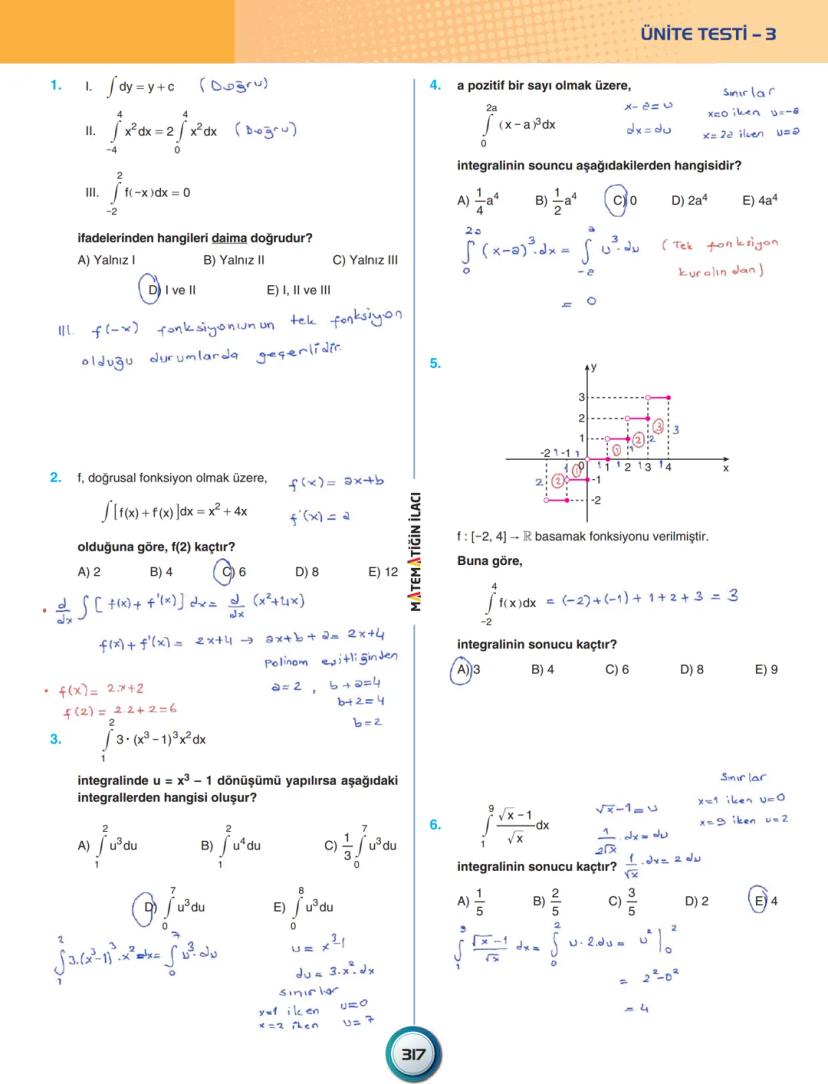 ÜNİTE TESTİ – 3
1. I. ∫ dy = y + c (Doğru)
II. ∫₋₄⁴ x² dx = 2 ∫₀⁴ x² dx (Doğru)
III. ∫₋₂² f(-x) dx = 0
ifadelerinden hangileri daima doğrudur?
A) Yalnız I B) Yalnız II C) Yalnız III
D) I ve II E) I, II ve III
III. f(-x) fonksiyonunun tek fonksiyon
olduğu durumlarda geçerlidir.
2. f, doğrusal fonksiyon olmak üzere,
f(x) = ax+b
∫ [f(x) + f(x)]dx = x² + 4x
f'(x) = a
olduğuna göre, f(2) kaçtır?
A) 2 B) 4 C) 6 D) 8 E) 12
• d/dx ∫ [f(x) + f'(x)] dx = d/dx (x²+4x)
f(x) + f'(x) = 2x+4 → ax+b+a = 2x+4
Polinom eşitliğinden
a=2, b+a=4
• f(x) = 2.x+2
b+2=4
f(2) = 2.2+2=6
b=2
3. ∫₁² 3·(x³ – 1)³x²dx
integralinde u = x³ – 1 dönüşümü yapılırsa aşağıdaki
integrallerden hangisi oluşur?
A) ∫₁² u³du B) ∫₁² u⁴du C) 1/3 ∫₀⁷ u³du
D) ∫₀⁷ u³du E) ∫₀⁸ u³du
∫₁² 3.(x³-1)³.x².dx = ∫₀⁷ u³.du
u = x³-1
du = 3.x².dx
sınırlar
x=1 iken u=0
x=2 iken u=7
MATEMATİĞİN İLACI
4. a pozitif bir sayı olmak üzere,
∫₀²ᵃ (x – a)³dx
x-a=u
dx=du
Sınırlar
x=0 iken u=-a
x=2a iken u=a
integralinin souncu aşağıdakilerden hangisidir?
A) 1/4 a⁴ B) 1/2 a⁴ C) 0 D) 2a⁴ E) 4a⁴
∫₀²ᵃ (x-a)³.dx = ∫₋ₐᵃ u³.du (Tek fonksiyon
kuralından)
= 0
5.
y
3
2
1
-2 -1 0 1 2 3 4 x
-1
-2
f : [–2, 4] → ℝ basamak fonksiyonu verilmiştir.
Buna göre,
∫₋₂⁴ f(x)dx = (-2)+(-1)+1+2+3 = 3
integralinin sonucu kaçtır?
A) 3 B) 4 C) 6 D) 8 E) 9
6. ∫₁⁹ (√x – 1)/√x dx
√x-1=u
1/(2√x) .dx=du
1/√x .dx=2du
Sınırlar
x=1 iken u=0
x=9 iken u=2
integralinin sonucu kaçtır?
A) 1/5 B) 2/5 C) 3/5 D) 2 E) 4
∫₁⁹ (√x-1)/√x dx = ∫₀² u.2.du = u² |₀²
= 2²-0²
= 4
317